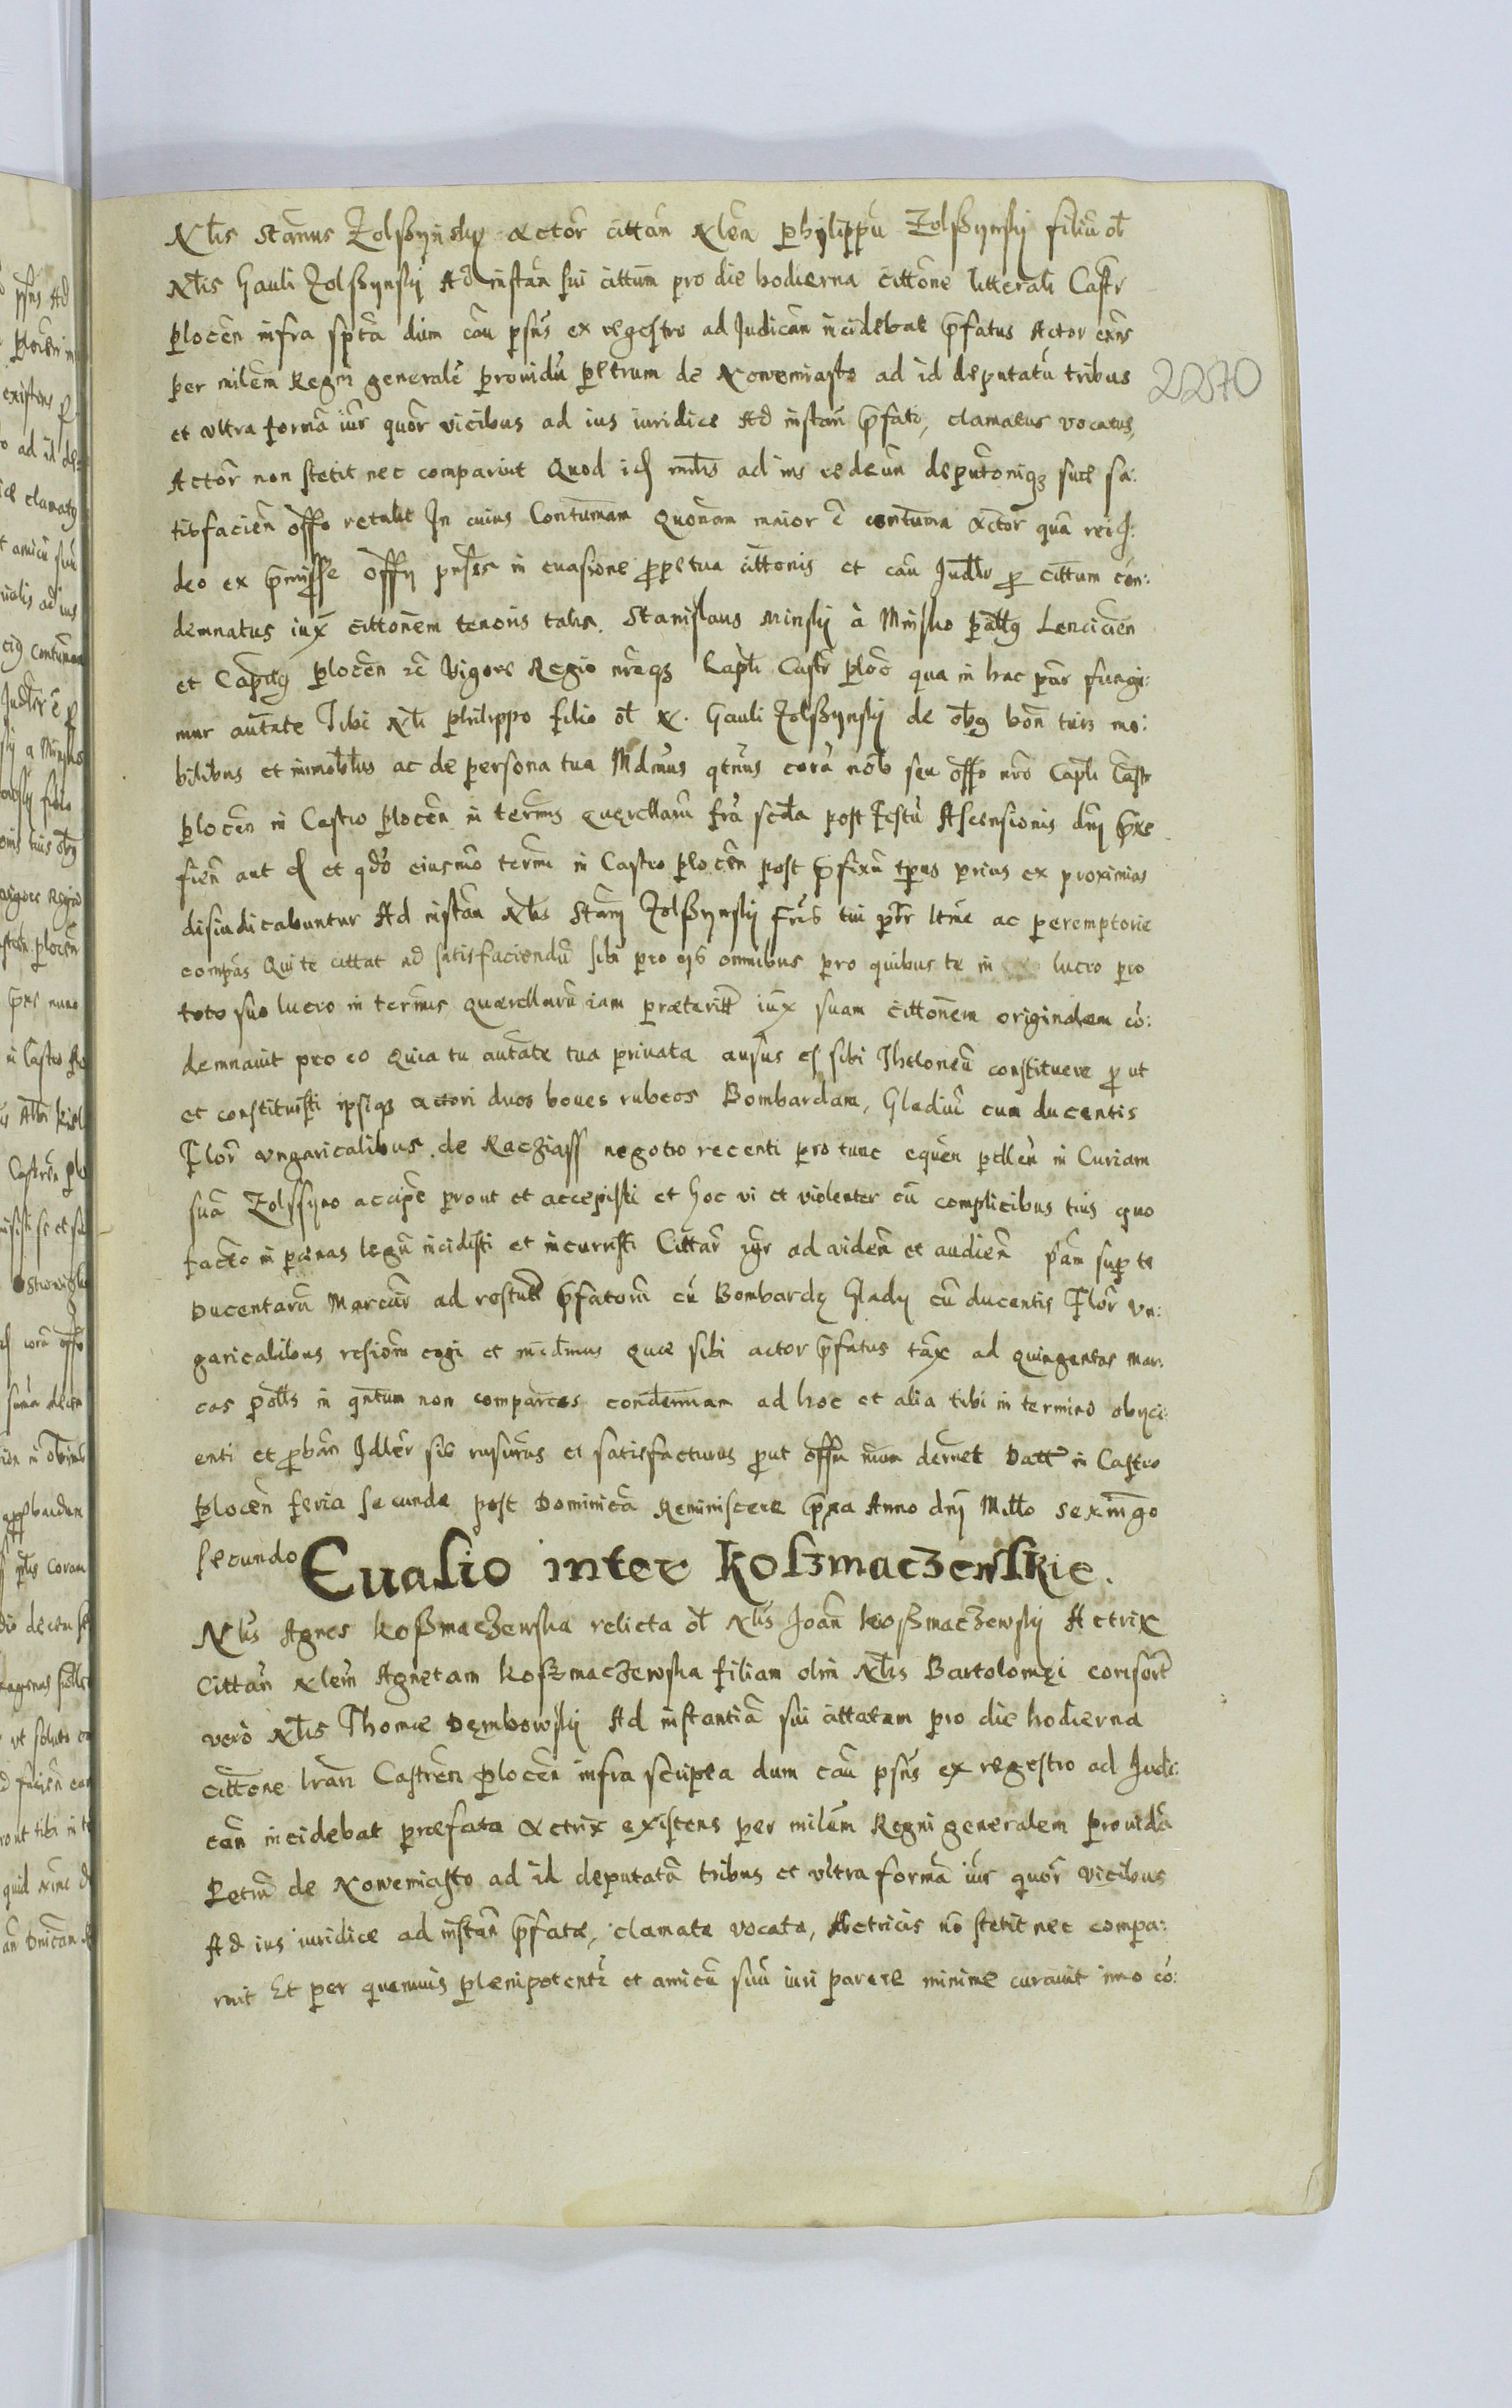 Nłis Stanus Zolssyinsky Actor cittan Nlem Phylippu Zolssynsky filiu ol
Nłis Gauli Zolssynsky Ad instan sui cittum pro die hodierna cittone litterali Castr
Plocen infra spta dum cau psns ex regestro ad Judican incidebat pfatus Actor exns
per milem Regni generale prouidu Petrum de Nowemiasto ad id deputatu tribus
2270
et vltra forma iur quor vicibus ad ius iuridice Ad instan pfati, clamatus vocatus,
Actor non stetit nec comparuit Quod id mlis ad ius redeun deputoniq3 sue sa:
tisfacien offo retulit In cuius Contumam quonam maior e contuma Actor qua rei
deo ex pmisse offy pnsis in euasione ppetua cittonis et cau Judlr p cittum con:
demnatus iux cittonem tenoris talis. Stanislaus Minsky à Minsko Pallg Lencicien
et Capitg Plocen rc Vigore Regio nraq3 Capli Castr Ploc qua in hac par fungi:
mur autate Tibi Nli Philippo filio ol N. Gauli Zolssynsky de obg bon tuis mo:
bilibus et immobilbus ac de persona tua Mdmus qtnus cora nob seu offo nro Capli Castr
Plocen in Castro Plocen in termis querellaru fra scda post Festu Ascensionis dnj pxe
fien aut et qdo eiusmo termi in Castro Plocen post pfixu tpus prius ex proximias
disiudicabuntur Ad instan Nłis Stanj Zolssynsky fris tui ptr ltme ac peremptorie
compas Qui te cittat ad satisfaciendu sibi pro ejs omnibus pro quibus te in lucro pro
toto suo lucro in termis quærellaru iam præteritt iux suam cittonem originalem co:
demnauit pro eo quia tu autate tua priuata ausus es sibi Theloneu constituere p ut
et constituisti ipsiq3 actori duos boues rubeos Bombardam, Gladiu cum ducentis
Flor vngaricalibus de Raciass negotio recenti pro tunc equen pellen in Curiam
sua Zolssyno accipe prout et accepisti et hoc vi et violenter cu complicibus tuis quo
facto in poenas legu incidisti et incurristi Cittar igr ad viden et audien pam sup te
Ducentaru Marcar ad restutt pfatoru cu Bombardę Glady cu ducentis Flor vn:
garicalibus resiom cogi et mdmus que sibi actor pfatus tax ad quingentas mar:
cas polls in qntum non comparces condemnam ad hoc et alia tibi in termino obyci:
enti et pban Jdler sis rusurus et satisfacturus put offm num dernet Datt in Castro
Plocen feria secunda post Dominica Reminiscere pxa Anno dnj Millo sexingo
secundo
Euasio inter Kosmaczewskie.
Nłis Agnes Kossmaczewska relicta ol Nłis Joan Kossmaczewsky Actrix
Cittan Nlem Agnetam Koszmaczewska filiam olim Nłis Bartolomęi consort
vero Nłis Thomæ Dęmbowsky Ad instantia sui cittatam pro die hodierna
cittone lran Castren Plocen infra scripta dum cau psns ex regestro ad Judi:
can incidebat præfata Actrix existens per milem Regni generalem prouidu
Petru de Nowemiasto ad id deputatu tribus et vltra forma iur quor vicibus
Ad ius iuridice ad instan pfatæ, clamata vocata, Actricis no stetit nec compa:
ruit Et per quemuis plenipotente et amicu suu iuri parere minime curauit imo co: